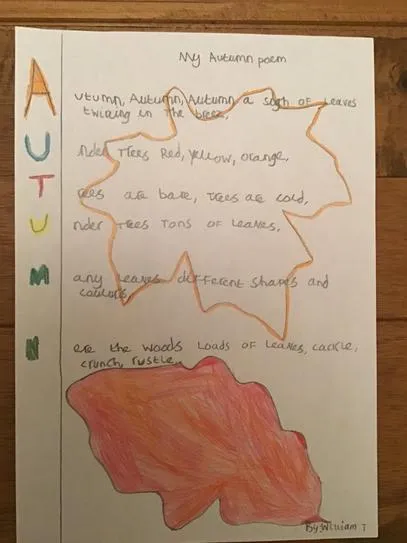 My Autumn poem
Autumn, Autumn, Autumn a sogh of leaves
twiring in the breez,
Under Trees Red, Yellow, orange,
Trees are bare, Trees are cold,
Under Trees Tons of leaves,
Many leaves different shapes and
coulurs
Nere the woods loads of leaves, cackle,
crunch, rustle.
By William T